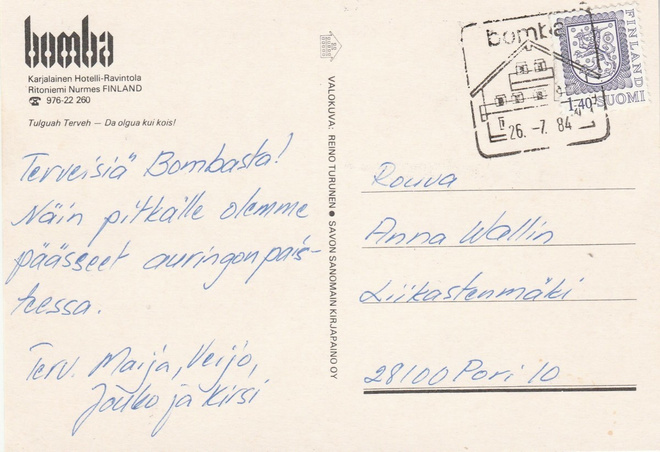 bomba
Karjalainen Hotelli-Ravintola
Ritoniemi Nurmes FINLAND
☎ 976-22 260
Tulguah Terveh — Da olgua kui kois!
Terveisiä Bombasta!
Näin pitkälle olemme
päässeet auringonpais-
teessa.
Terv. Maija, Veijo,
Jouko ja Kirsi
VALOKUVA: REINO TURUNEN ● SAVON SANOMAIN KIRJAPAINO OY
bomba
26. -7. 84
FINLAND
1,40
SUOMI
Rouva
Anna Wallin
Liikastenmäki
28100 Pori 10